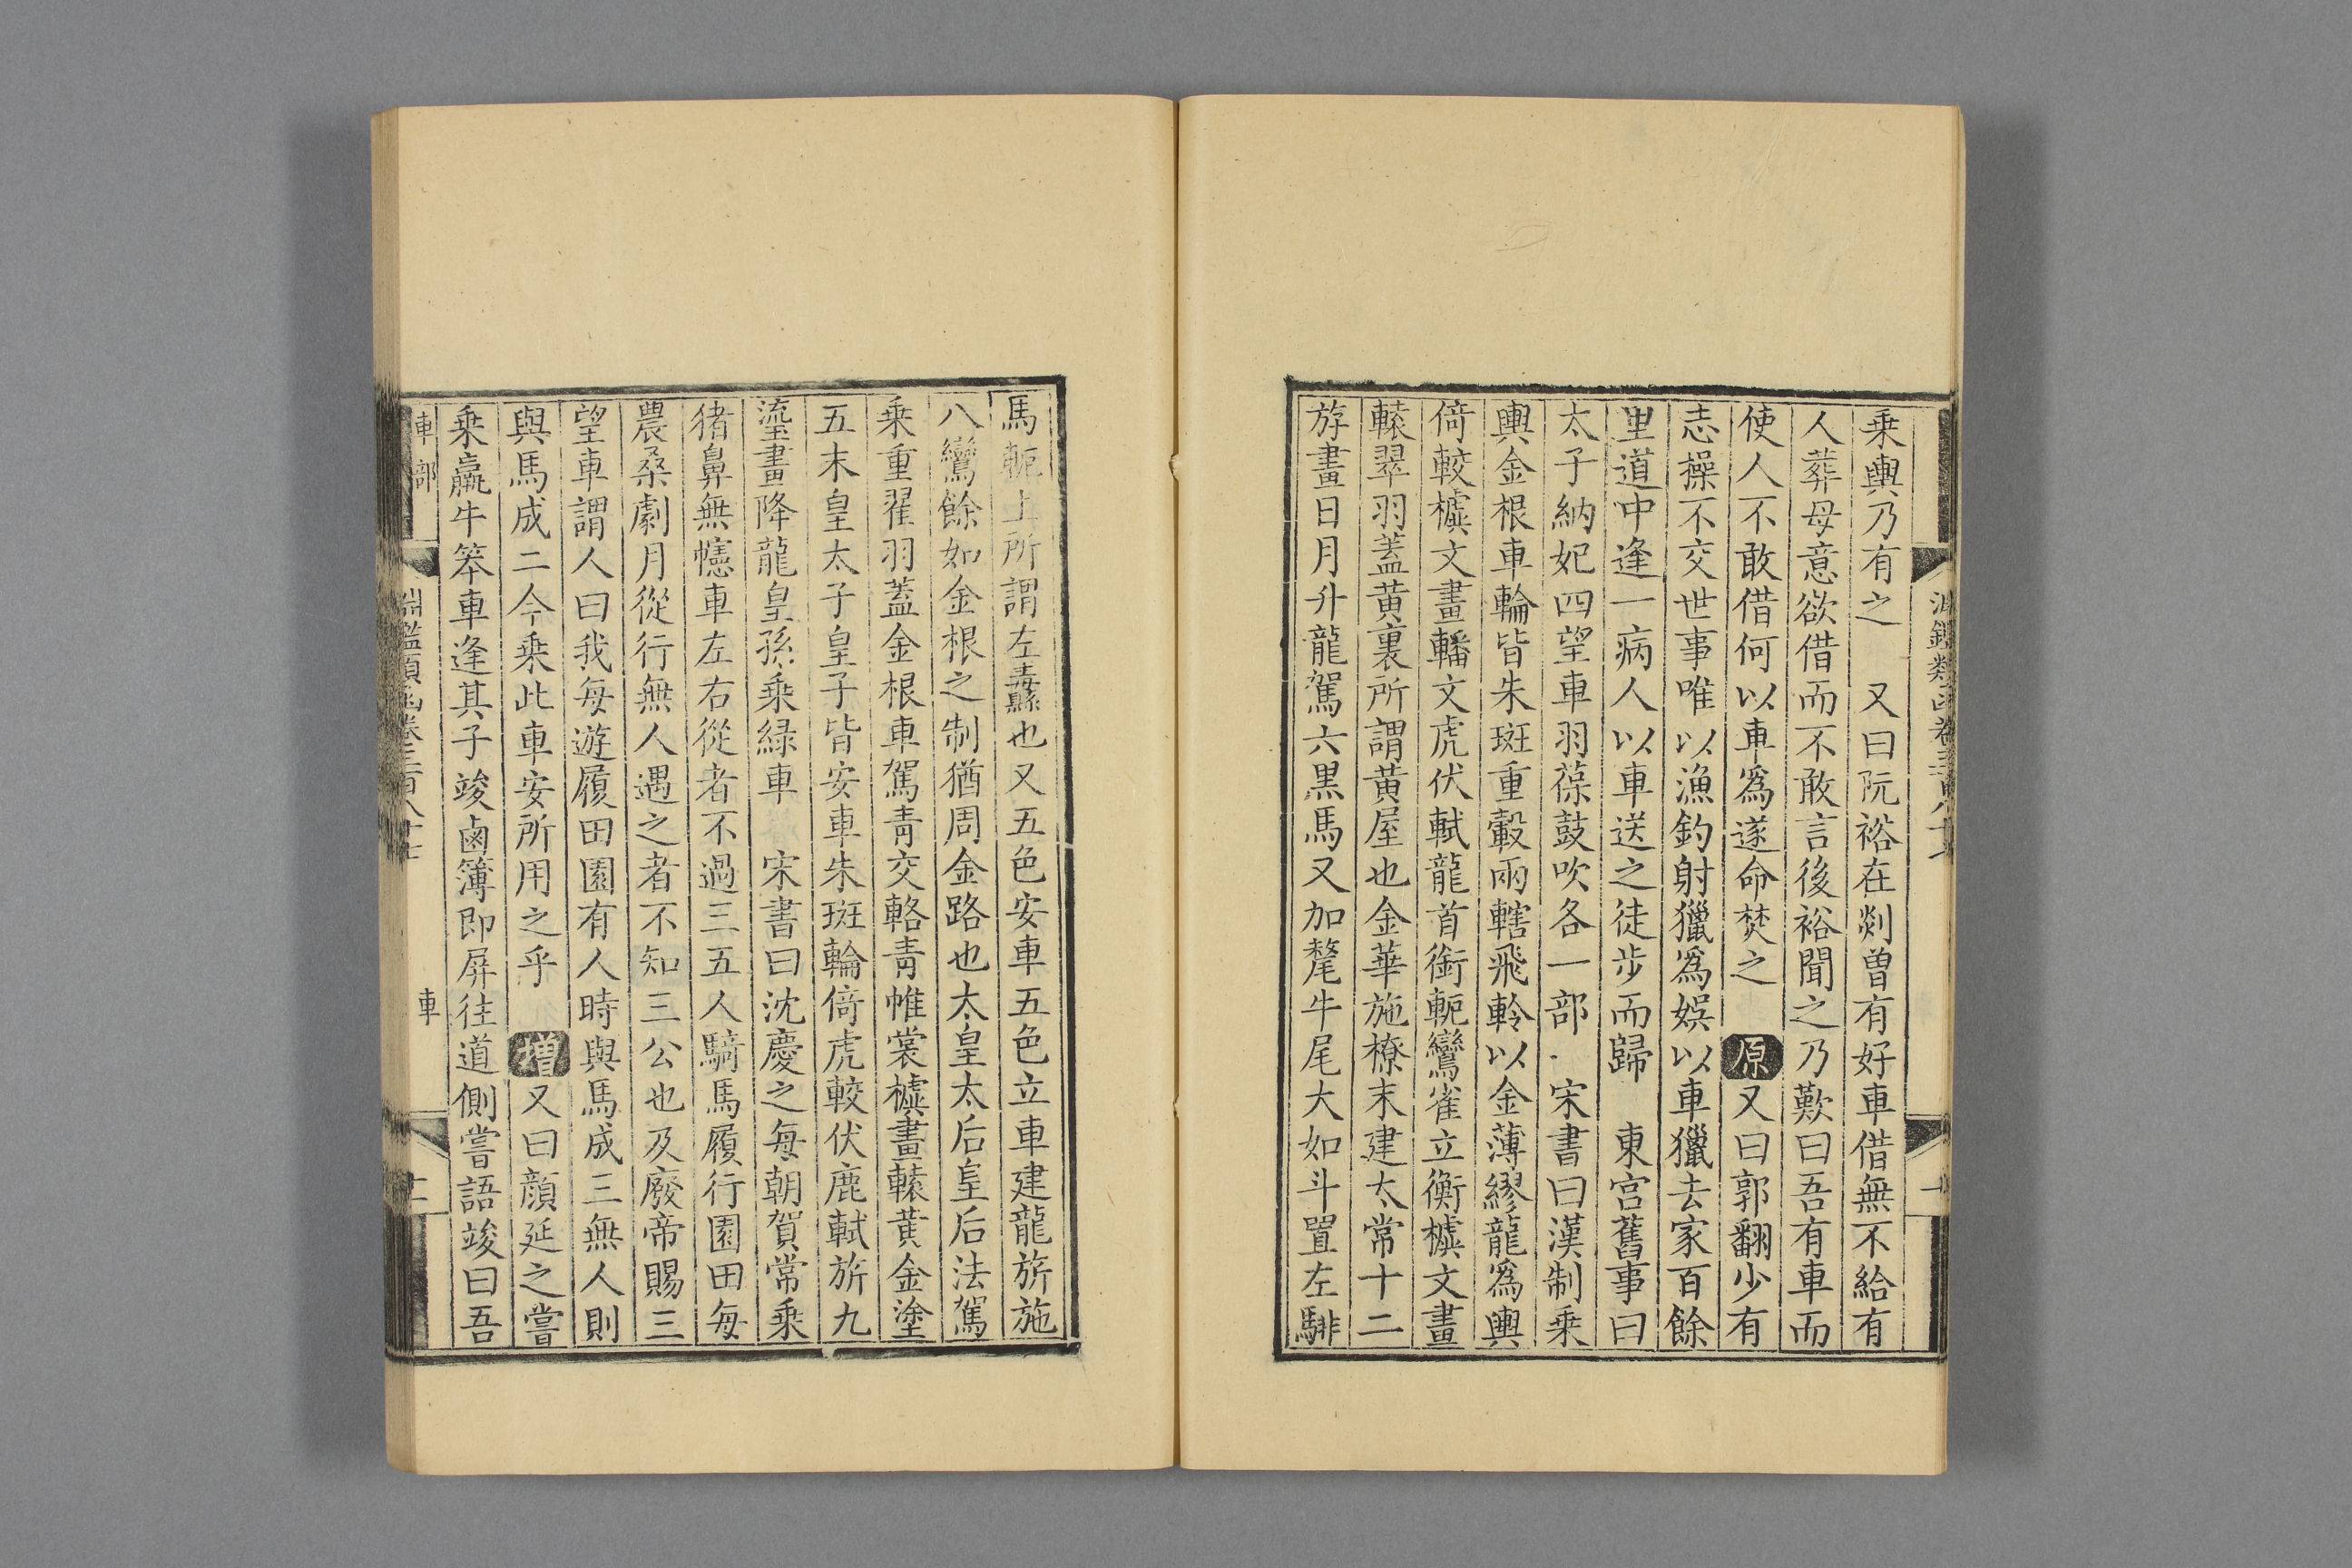 乗輿乃有之　又曰阮裕在剡曽有好車借無不給有
人葬母意欲借而不敢言後裕聞之乃歎曰吾有車而
使人不敢借何以車爲遂命焚之　原又曰郭翻少有
志操不交世事唯以漁釣射獵爲娛以車獵去家百餘
里道中逢一病人以車送之徒步而歸　東宮舊事曰
太子納妃四望車羽葆鼓吹各一部　宋書曰漢制乗
輿金根車輪皆朱斑重轂兩轄飛軨以金薄繆龍爲輿
倚較櫎文畫轓文虎伏軾龍首銜軛鸞雀立衡櫎文畫
轅翠羽蓋黄裏所謂黄屋也金華施橑末建太常十二
斿畫日月升龍駕六黒馬又加氂牛尾大如斗置左騑
馬軛上所謂左纛也又五色安車五色立車建龍旂施
八鸞餘如金根之制猶周金路也太皇太后皇后法駕
乗重翟羽蓋金根車駕青交輅青帷裳櫎畫轅黄金塗
五末皇太子皇子皆安車朱斑輪倚虎較伏鹿軾旂九
旒畫降龍皇孫乗緑車　宋書曰沈慶之每朝賀常乗
猪鼻無幰車左右從者不過三五人騎馬履行園田每
農桑劇月從行無人遇之者不知三公也及廢帝賜三
望車謂人曰我每遊履田園有人時與馬成三無人則
與馬成二今乗此車安所用之乎　增又曰顔延之嘗
乗羸牛笨車逢其子竣鹵簿即屏往道側嘗語竣曰吾
車部
淵鑑類函卷三百八十七
車
二